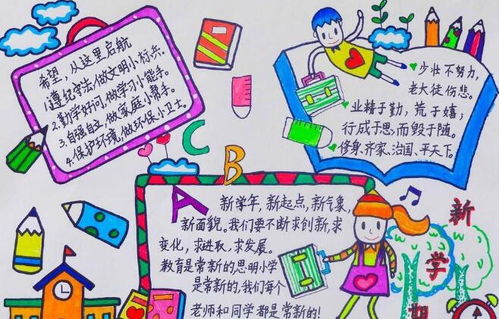 希望，从这里启航
1.遵纪守法，做文明小标兵。
2.勤学好问，做学习小能手。
3.自强自立，做家庭小帮手。
4.保护环境，做环保小卫士。
少壮不努力，
老大徒伤悲。
业精于勤，荒于嬉；
行成于思，而毁于随。
修身、齐家、治国、平天下。
A
B
C
新学年，新起点，新气象，
新面貌。我们要不断求创新，求
变化，求进取，求发展。
教育是常新的，思明小学
是常新的，我们每个
老师和同学都是常新的！
新
学
期